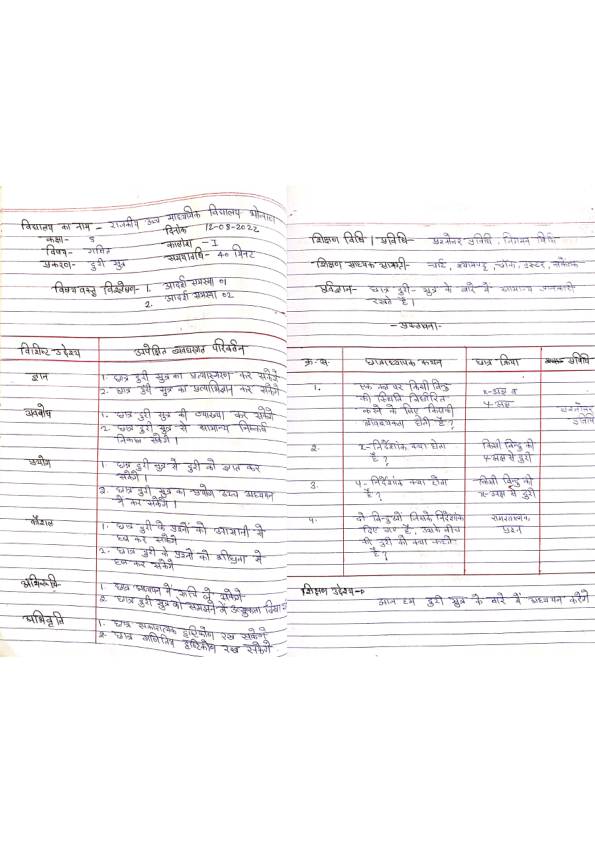 विद्यालय का नाम - राजकीय उच्च माध्यमिक विद्यालय
कक्षा-
दिनांक 12-08-2022
विषय- गणित
कालांश - I
प्रकरण- दुरी सुत्र
समयावधि- 40 मिनट
विषय वस्तु विश्लेषण- 1. आदर्श समस्या 01
2. आदर्श समस्या 02
विशिष्ट उद्देश्य
अपेक्षित व्यवहारगत परिवर्तन
ज्ञान
1. छात्र दुरी सुत्र का प्रत्यास्मरण कर सकेंगे
2- छात्र दुरी सुत्र का प्रत्याभिज्ञान कर सकेंगे
अवबोध
1. छात्र दुरी सुत्र की व्याख्या कर सकेंगे
2. छात्र दुरी सुत्र से सामान्य निष्कर्ष
निकाल सकेंगे।
1. छात्र दुरी सुत्र से दुरी को ज्ञात कर
सकेंगे।
2. छात्र दुरी सुत्र का प्रयोग अध्ययन
में कर सकेंगे।
कौशल
1. छात्र दुरी के प्रश्नों को आसानी से
हल कर सकेंगे
2- छात्र दुरी के प्रश्नों को शीघ्रता से
हल कर सकेंगे
अभिरूचि-
1. छात्र अध्ययन में रूचि ले सकेंगे
2. छात्र दुरी सुत्र को समझने में उत्सुकता
अभिवृति
1. छात्र सकारात्मक दृष्टिकोण रख सकेंगे
2- छात्र गणितिय दृष्टिकोण रख सकेंगे
शिक्षण विधि । प्रविधि- प्रश्नोतर प्रविधि, निगमन विधि
शिक्षण सहायक सामग्री- चार्ट, श्यामपट्ट, चॉक, डस्टर, संकेतक
पुर्वज्ञान- छात्र दुरी- सुत्र के बारे में सामान्य जानकारी
रखते है।
- प्रस्तावना-
क्र.स.
छात्राध्यापक कथन
छात्र क्रिया
प्रविधि
1.
एक तल पर किसी बिन्दु
की स्थिति निर्धारित
करने के लिए किसकी
आवश्यकता होती है?
x-अक्ष व
y-अक्ष
प्रश्नोतर
प्रविधि
2.
x-निर्देशांक क्या होता
है?
किसी बिन्दु की
y-अक्ष से दुरी
3.
y- निर्देशांक क्या होता
है?
किसी बिन्दु की
x-अक्ष से दुरी
4.
दो बिन्दुओं जिसके निर्देशांक
दिए गए है, उसके बीच
की दुरी को क्या कहते
है?
समस्यात्मक
प्रश्न
शिक्षण उद्देश्य-
आज हम दुरी सुत्र के बारे में अध्ययन करेंगे